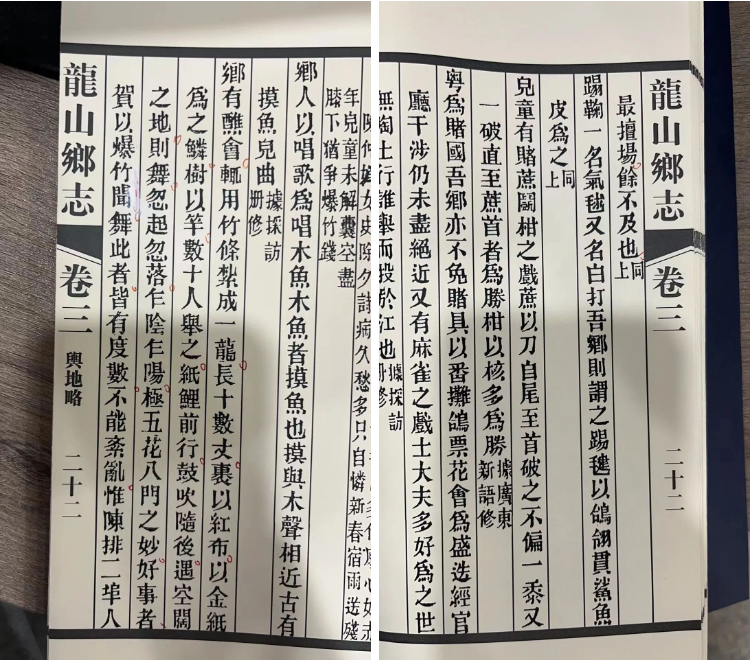 女史除夕詩病久愁多只自憐新春宿雨送殘
年兒童未解囊空盡
膝下猶爭爆竹錢
鄉人以唱歌為唱木魚木魚者摸魚也摸與木聲相近古有
摸魚兒曲據採訪冊修
鄉有醮會輒用竹條紮成一龍長十數丈裹以紅布以金紙
為之鱗樹以竿數十人舉之紙鯉前行鼓吹隨後遇空闊
之地則舞忽起忽落乍陰乍陽極五花八門之妙好事者
賀以爆竹聞舞此者皆有度數不能紊亂惟陳排二埠人
龍山鄉志 卷三 輿地略 二十二
龍山鄉志 卷三 二十二
最擅場餘不及也同上
踢鞠一名氣毬又名白打吾鄉則謂之踢毽以鴿翎貫鯊魚
皮為之同上
兒童有賭蔗鬭柑之戲蔗以刀自尾至首破之不偏一黍又
一破直至蔗首者為勝柑以核多為勝據廣東新語修
粵為賭國吾鄉亦不免賭具以番攤鴿票花會為盛迭經官
廳干涉仍未盡絕近又有麻雀之戲士大夫多好為之世
無陶士行誰舉而投於江也據採訪冊修